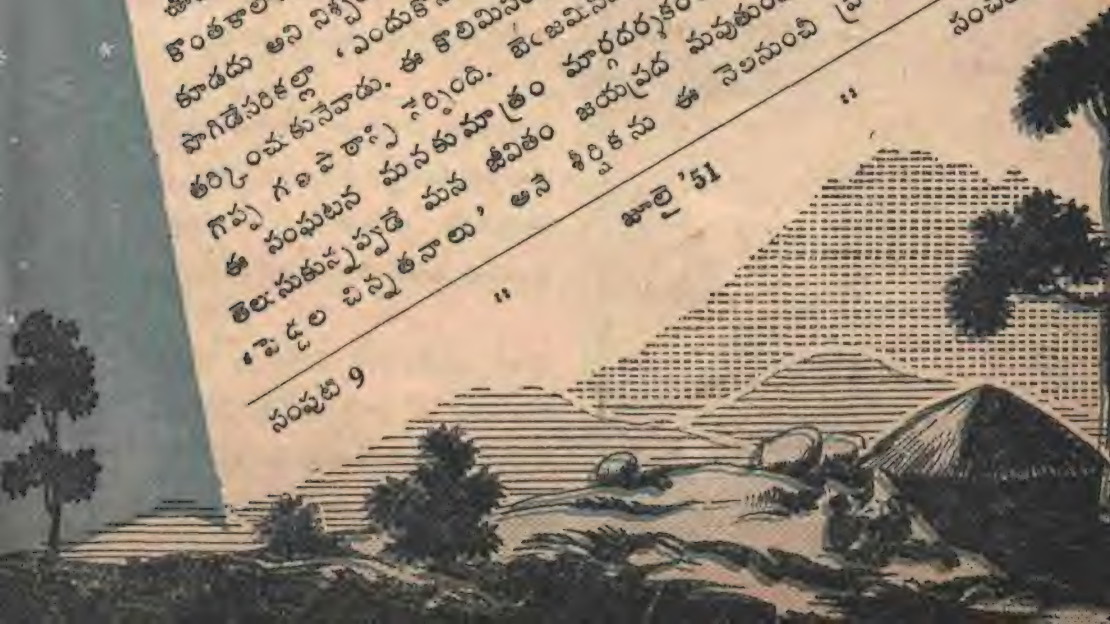 కొంతకాలం
కూడదు అని
పొగిడేసరికల్లా 'ఎందుకొ
తర్కించుకునేవాడు. ఈ కొలిమిసి
గొప్ప గుణపాఠాన్ని నేర్పింది. బెంజమిన్
ఈ సంఘటన మనకుమాత్రం మార్గదర్శకం
తెలుసుకున్నప్పుడే మన జీవితం జయప్రద మవుతుంది
'పెద్దల చిన్నతనాలు' అనే శీర్షికను ఈ నెలనుంచీ
సంపుటి 9 :: జూలై '51 :: సంచిక